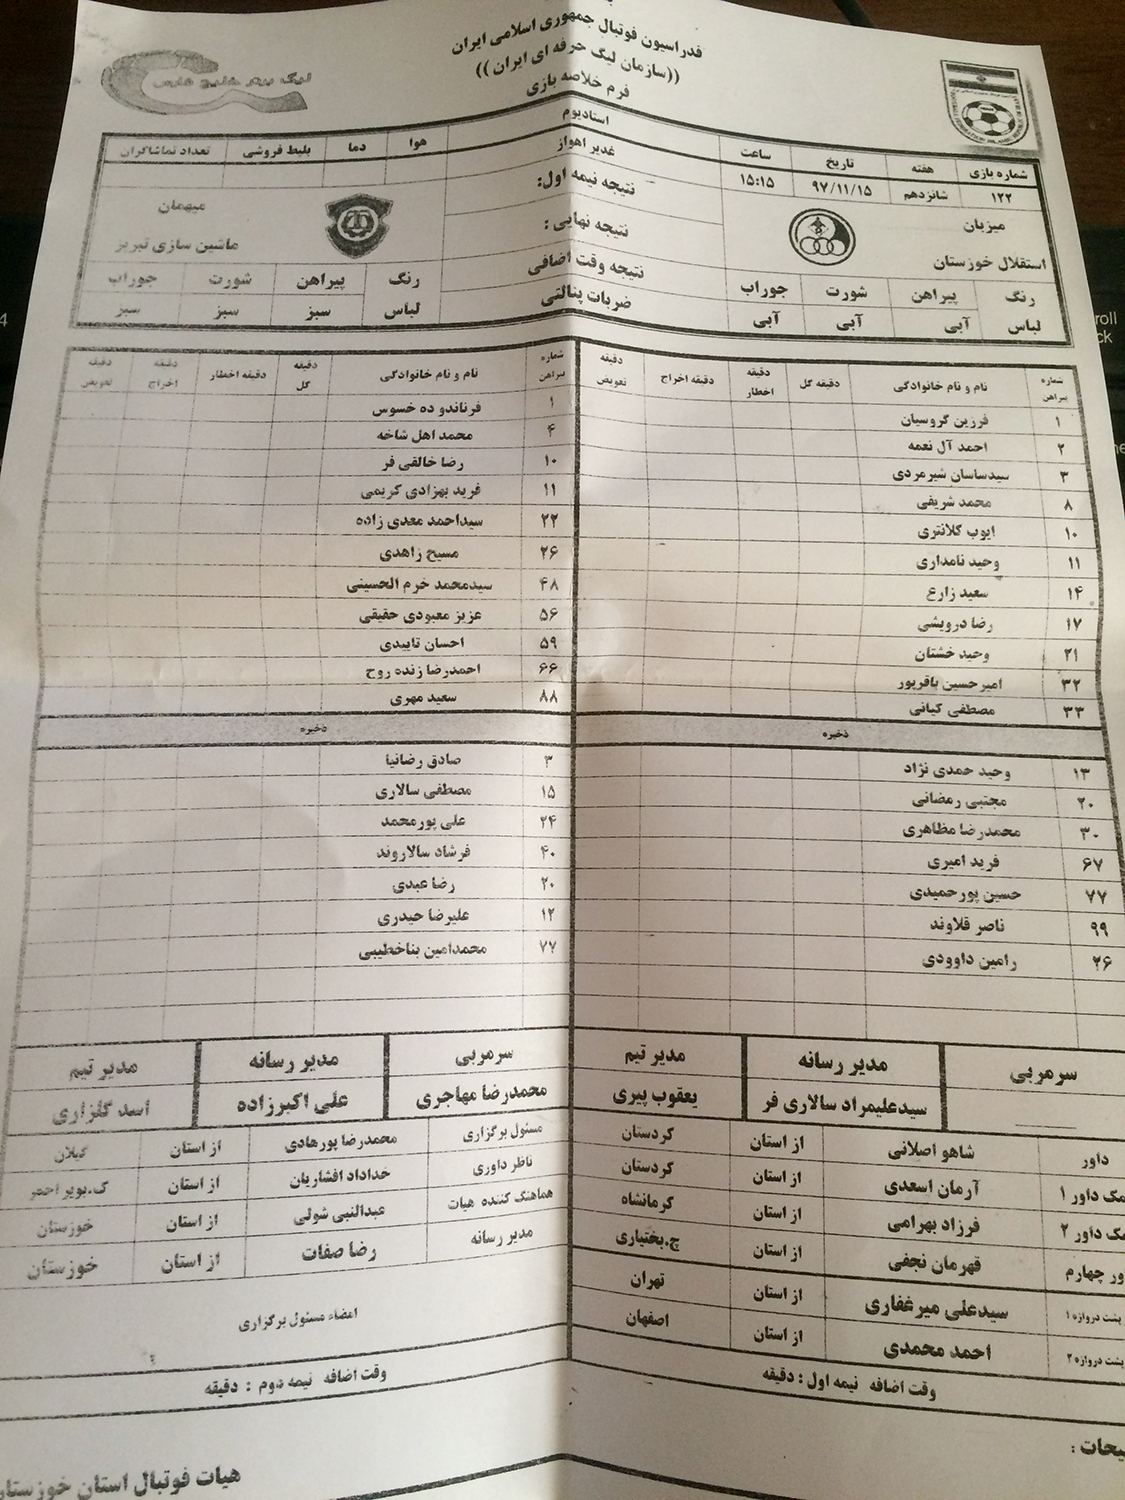 فدراسیون فوتبال جمهوری اسلامی ایران
((سازمان لیگ حرفه ای ایران))
فرم خلاصه بازی
لیگ برتر خلیج فارس
شماره بازی هفته تاریخ ساعت استادیوم هوا دما بلیط فروشی تعداد تماشاگران
۱۲۲ شانزدهم ۹۷/۱۱/۱۵ ۱۵:۱۵ غدیر اهواز
میزبان نتیجه نیمه اول: میهمان
استقلال خوزستان نتیجه نهایی : ماشین سازی تبریز
نتیجه وقت اضافی
ضربات پنالتی
رنگ لباس پیراهن شورت جوراب رنگ لباس پیراهن شورت جوراب
آبی آبی آبی سبز سبز سبز
شماره پیراهن نام و نام خانوادگی دقیقه گل دقیقه اخطار دقیقه اخراج دقیقه تعویض شماره پیراهن نام و نام خانوادگی دقیقه گل دقیقه اخطار دقیقه اخراج دقیقه تعویض
۱ فرزین گروسیان ۱ فرناندو ده خسوس
۲ احمد آل نعمه ۴ محمد اهل شاخه
۳ سیدساسان شیرمردی ۱۰ رضا خالقی فر
۸ محمد شریفی ۱۱ فرید بهزادی کریمی
۱۰ ایوب کلانتری ۲۲ سیداحمد معدی زاده
۱۱ وحید نامداری ۲۶ مسیح زاهدی
۱۴ سعید زارع ۴۸ سیدمحمد خرم الحسینی
۱۷ رضا درویشی ۵۶ عزیز معبودی حقیقی
۲۱ وحید خشتان ۵۹ احسان تاییدی
۳۲ امیرحسین باقرپور ۶۶ احمدرضا زنده روح
۳۳ مصطفی کیانی ۸۸ سعید مهری
ذخیره ذخیره
۱۳ وحید حمدی نژاد ۳ صادق رضانیا
۲۰ مجتبی رمضانی ۱۵ مصطفی سالاری
۳۰ محمدرضا مظاهری ۲۴ علی پورمحمد
۶۷ فرید امیری ۴۰ فرشاد سالاروند
۷۷ حسین پورحمیدی ۲۰ رضا عبدی
۹۹ ناصر قلاوند ۱۲ علیرضا حیدری
۲۶ رامین داوودی ۷۷ محمدامین بناخطیبی
سرمربی مدیر رسانه مدیر تیم سرمربی مدیر رسانه مدیر تیم
سیدعلیمراد سالاری فر یعقوب پیری محمدرضا مهاجری علی اکبرزاده اسد گلزاری
داور شاهو اصلانی از استان کردستان مسئول برگزاری محمدرضا پورهادی از استان گیلان
مک داور ۱ آرمان اسعدی از استان کردستان ناظر داوری خداداد افشاریان از استان ک.بویر احمر
مک داور ۲ فرزاد بهرامی از استان کرمانشاه هماهنگ کننده هیات عبدالنبی شولی از استان خوزستان
ور چهارم قهرمان نجفی از استان چ.بختیاری مدیر رسانه رضا صفات از استان خوزستان
پشت دروازه ۱ سیدعلی میرغفاری از استان تهران
پشت دروازه ۲ احمد محمدی از استان اصفهان
امضاء مسئول برگزاری
وقت اضافه نیمه اول : دقیقه وقت اضافه نیمه دوم : دقیقه
یحات :
هیات فوتبال استان خوزستان